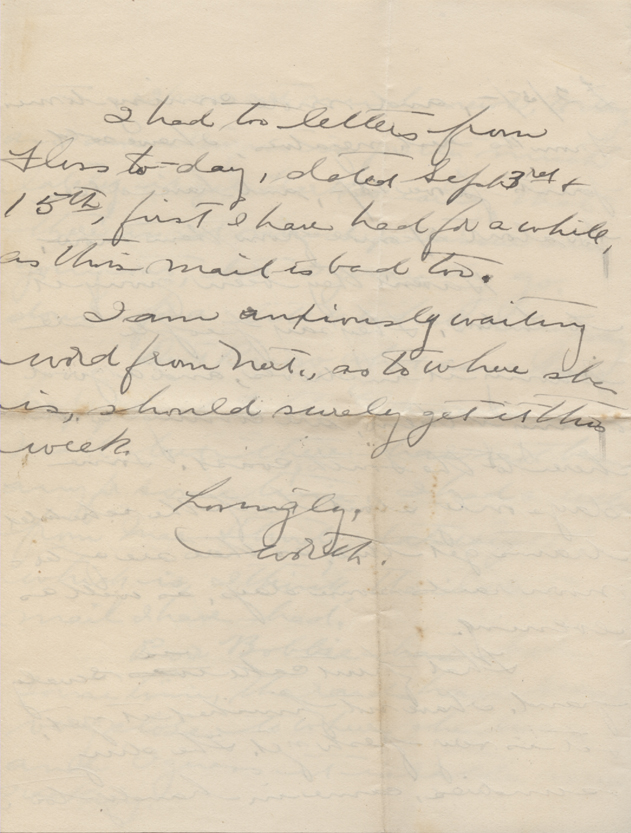 I had too letters from
Floss to-day, dated Sept 3rd &
15th, first I have had for a while,
as this mail is bad too.
I am anxiously waiting
word from Net., as to where she
is, should surely get it this
week.
Lovingly,
Worth.